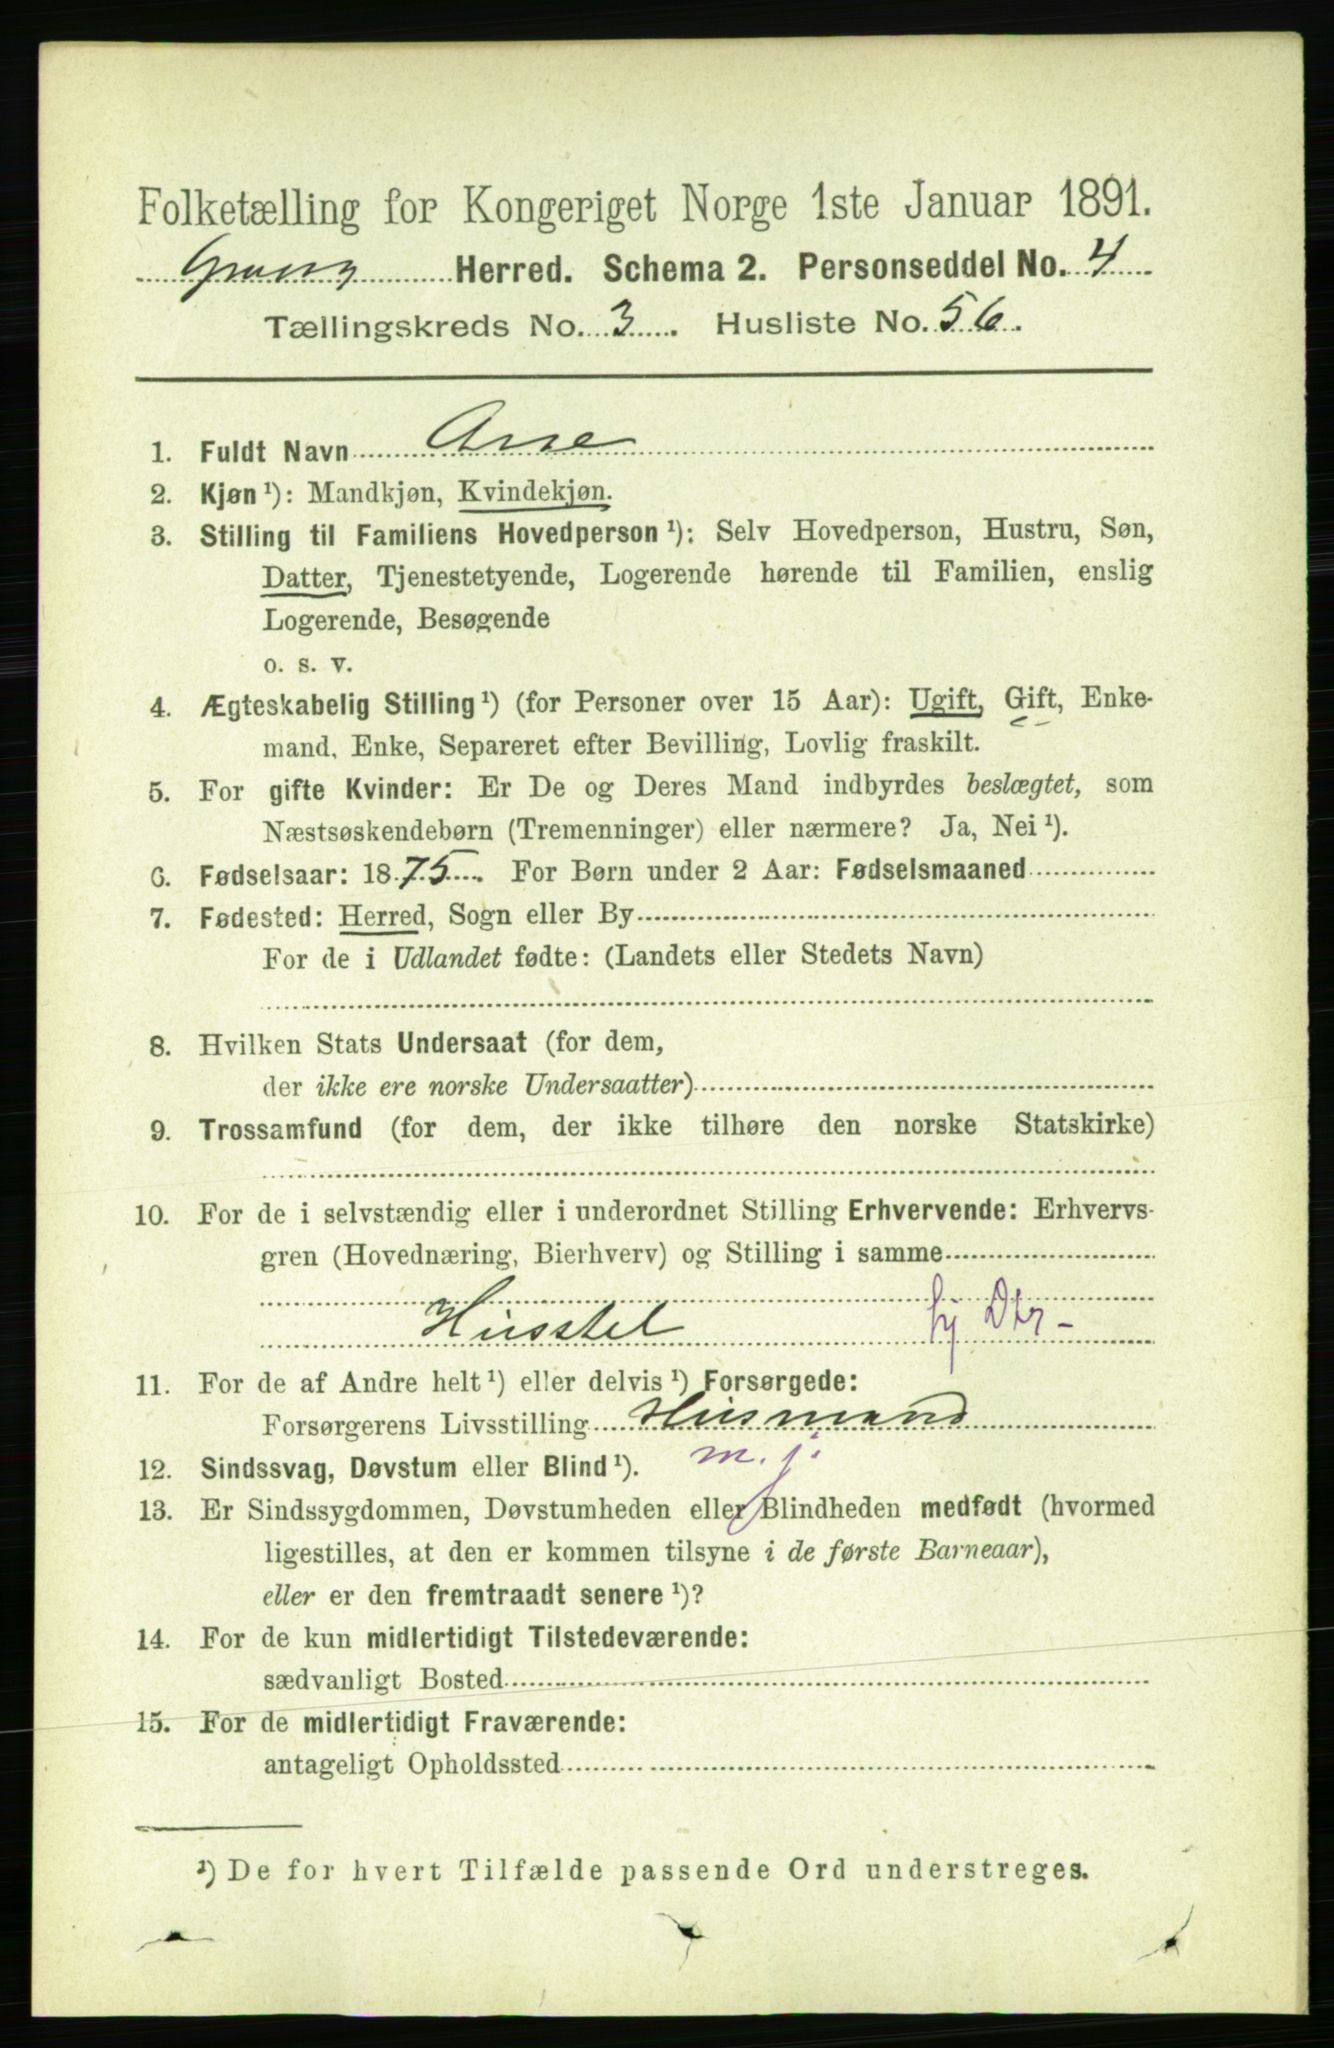 Folketælling for Kongeriget Norge 1ste Januar 1891.
Grong Herred. Schema 2. Personseddel No. 4
Tællingskreds No. 3. Husliste No. 56.
1. Fuldt Navn Ane
2. Kjøn ¹): Mandkjøn, Kvindekjøn.
3. Stilling til Familiens Hovedperson ¹): Selv Hovedperson, Hustru, Søn,
Datter, Tjenestetyende, Logerende hørende til Familien, enslig
Logerende, Besøgende
o. s. v.
4. Ægteskabelig Stilling ¹) (for Personer over 15 Aar): Ugift, Gift, Enke-
mand, Enke, Separeret efter Bevilling, Lovlig fraskilt.
5. For gifte Kvinder: Er De og Deres Mand indbyrdes beslægtet, som
Næstsøskendebørn (Tremenninger) eller nærmere? Ja, Nei ¹).
6. Fødselsaar: 1875. For Børn under 2 Aar: Fødselsmaaned
7. Fødested: Herred, Sogn eller By
For de i Udlandet fødte: (Landets eller Stedets Navn)
8. Hvilken Stats Undersaat (for dem,
der ikke ere norske Undersaatter)
9. Trossamfund (for dem, der ikke tilhøre den norske Statskirke)
10. For de i selvstændig eller i underordnet Stilling Erhvervende: Erhvervs-
gren (Hovednæring, Bierhverv) og Stilling i samme
Husstel hj Dtr -
11. For de af Andre helt ¹) eller delvis ¹) Forsørgede:
Forsørgerens Livsstilling Husmand
m. j.
12. Sindssvag, Døvstum eller Blind ¹).
13. Er Sindssygdommen, Døvstumheden eller Blindheden medfødt (hvormed
ligestilles, at den er kommen tilsyne i de første Barneaar),
eller er den fremtraadt senere ¹)?
14. For de kun midlertidigt Tilstedeværende:
sædvanligt Bosted
15. For de midlertidigt Fraværende:
antageligt Opholdssted
¹) De for hvert Tilfælde passende Ord understreges.